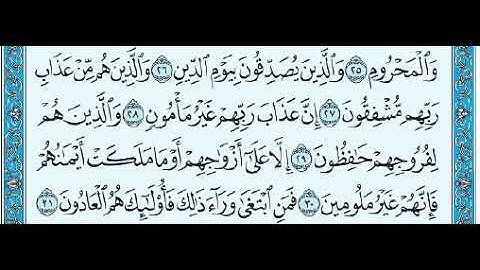 وَٱلۡمَحۡرُومِ ٢٥ وَٱلَّذِينَ يُصَدِّقُونَ بِيَوۡمِ ٱلدِّينِ ٢٦ وَٱلَّذِينَ هُم مِّنۡ عَذَابِ
رَبِّهِم مُّشۡفِقُونَ ٢٧ إِنَّ عَذَابَ رَبِّهِمۡ غَيۡرُ مَأۡمُونٖ ٢٨ وَٱلَّذِينَ هُمۡ
لِفُرُوجِهِمۡ حَٰفِظُونَ ٢٩ إِلَّا عَلَىٰٓ أَزۡوَٰجِهِمۡ أَوۡ مَا مَلَكَتۡ أَيۡمَٰنُهُمۡ
فَإِنَّهُمۡ غَيۡرُ مَلُومِينَ ٣٠ فَمَنِ ٱبۡتَغَىٰ وَرَآءَ ذَٰلِكَ فَأُوْلَٰٓئِكَ هُمُ ٱلۡعَادُونَ ٣١